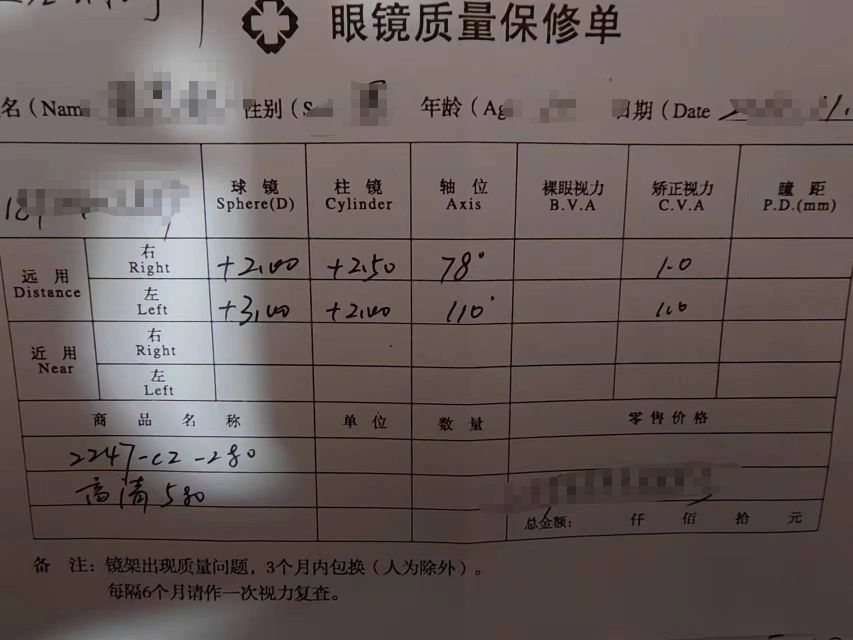 眼镜质量保修单
名(Nam 性别(S 年龄(Ag 日期(Date
球镜 柱镜 轴位 裸眼视力 矫正视力 瞳距
Sphere(D) Cylinder Axis B.V.A C.V.A P.D.(mm)
远用 Distance 右 Right +2.00 +2.50 78° 1.0
左 Left +3.00 +2.00 110° 1.0
近用 Near 右 Right
左 Left
商品名称 单位 数量 零售价格
2247-c2-280
高清580
总金额: 仟 佰 拾 元
备 注:镜架出现质量问题,3个月内包换(人为除外)。
每隔6个月请作一次视力复查。